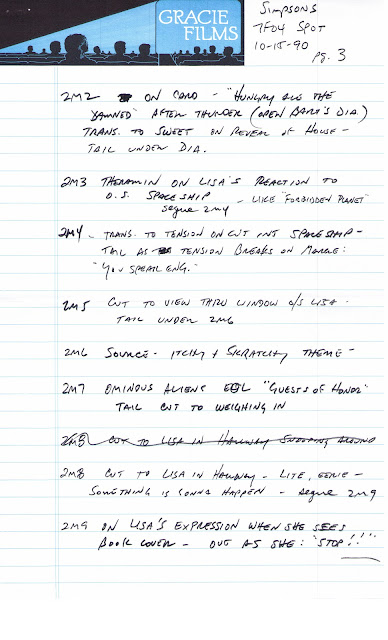 GRACIE
FILMS
SIMPSONS
7F04 SPOT
10-15-90
pg. 3
2M2 ON CARD - "HUNGRY ARE THE
DAMNED" AFTER THUNDER (OPEN BART'S DIA.)
TRANS. TO SWEET ON REVEAL OF HOUSE -
TAIL UNDER DIA.
2M3 THERAMIN ON LISA'S REACTION TO
O.S. SPACESHIP - LIKE "FORBIDDEN PLANET"
segue 2M4
2M4 - TRANS. TO TENSION ON CUT INT SPACESHIP -
TAIL AS TENSION BREAKS ON MARGE:
"YOU SPEAK ENG."
2M5 CUT TO VIEW THRU WINDOW O/S LISA -
TAIL UNDER 2M6
2M6 SOURCE - ITCHY & SCRATCHY THEME -
2M7 OMINOUS ALIENS EOL "GUESTS OF HONOR"
TAIL CUT TO WEIGHING IN
2M8 CUT TO LISA IN HALLWAY SNOOPING AROUND
2M8 CUT TO LISA IN HALLWAY - LITE, EERIE -
SOMETHING IS GONNA HAPPEN - segue 2M9
2M9 ON LISA'S EXPRESSION WHEN SHE SEES
BOOK COVER - OUT AS SHE: "STOP!!"